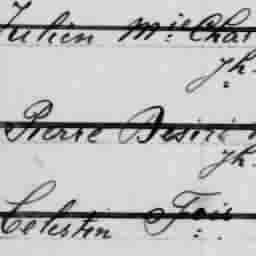 Julien Mie Char
Jh.
Pierre Désiré
Jh.
Celestin Fois